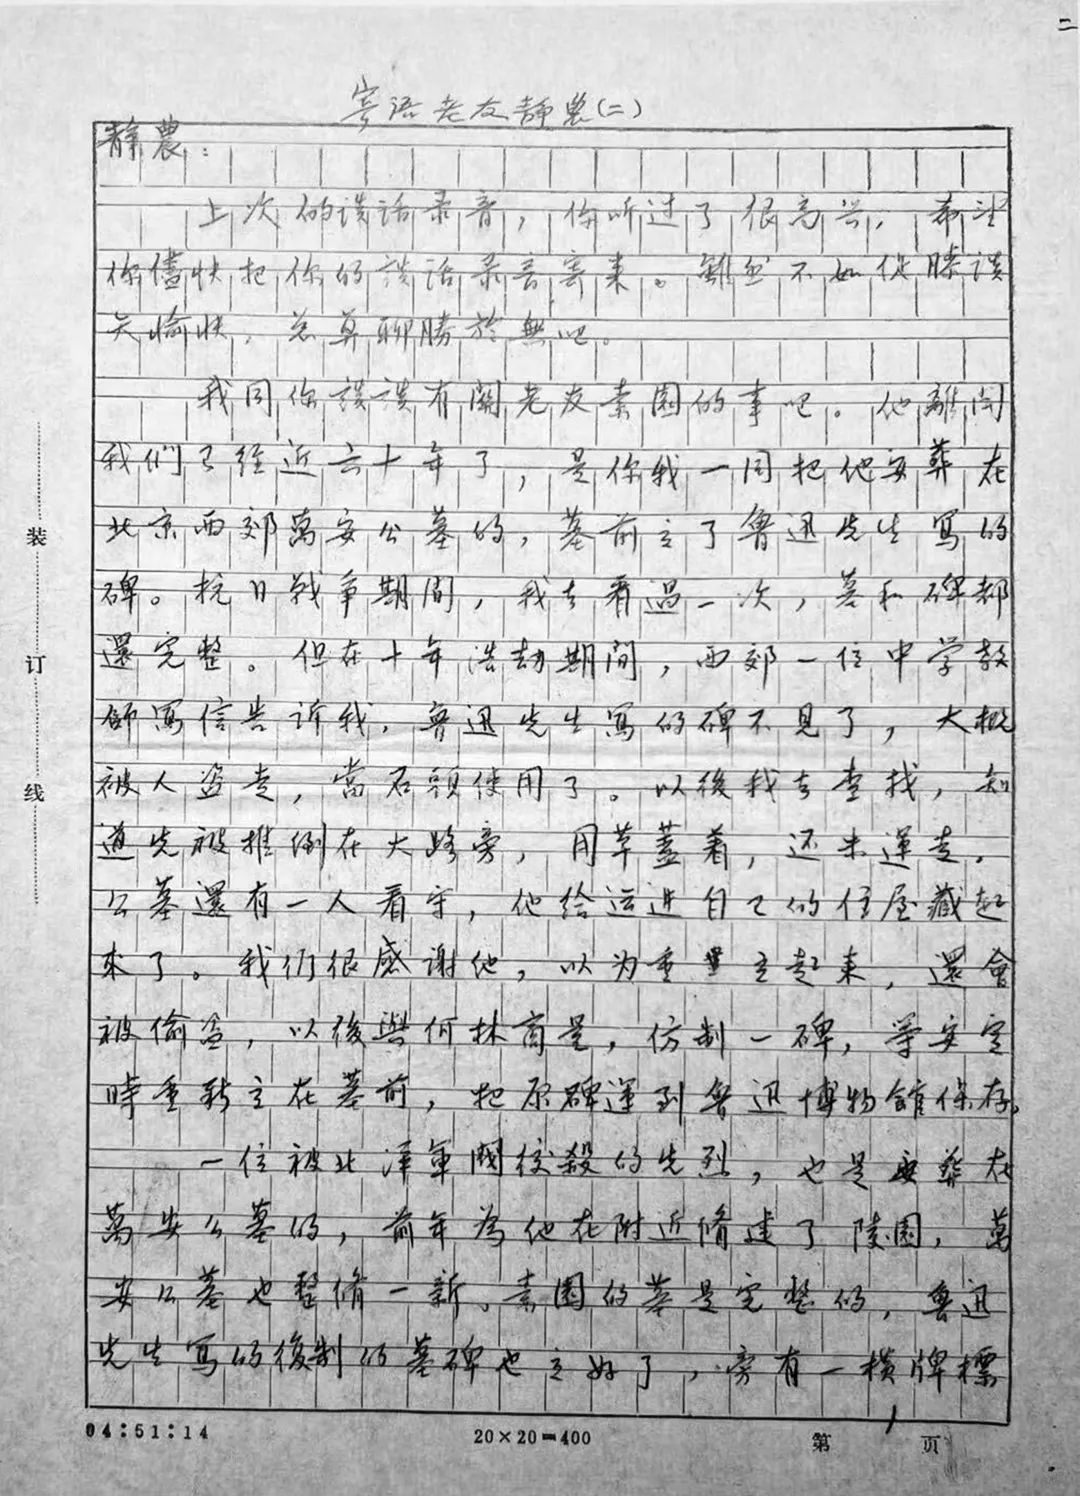 二
寄语老友靜農(二)
靜農：
上次的谈话录音，你听过了很高兴，希望
你儘快把你的谈话录音寄来。雖然不如促膝谈
天愉快，总算聊勝於無吧。
我同你谈谈有關老友素園的事吧。他離開
我们已经近六十年了，是你我一同把他安葬在
北京西郊萬安公墓的，墓前立了鲁迅先生寫的
碑。抗日戰争期間，我去看過一次，墓和碑都
還完整。但在十年浩劫期間，西郊一位中学教
師寫信告訴我，鲁迅先生寫的碑不見了，大概
被人盗走，當石頭使用了。以後我去查找，知
道先被推倒在大路旁，用草蓋着，还未運走。
公墓還有一人看守，他给运进自己的住屋藏起
来了。我们很感谢他，以为重立起来，還會
被偷盗，以後與何林商量，仿制一碑，等安定
時重新立在墓前，把原碑運到鲁迅博物館保存。
一位被北洋軍閥绞殺的先烈，也是安葬在
萬安公墓的，前年為他在附近脩建了陵園，萬
安公墓也整脩一新。素園的墓是完整的，鲁迅
先生寫的後制的墓碑也立好了，旁有一横牌標
装
订
线
04:51:14
20×20=400
第 1 页